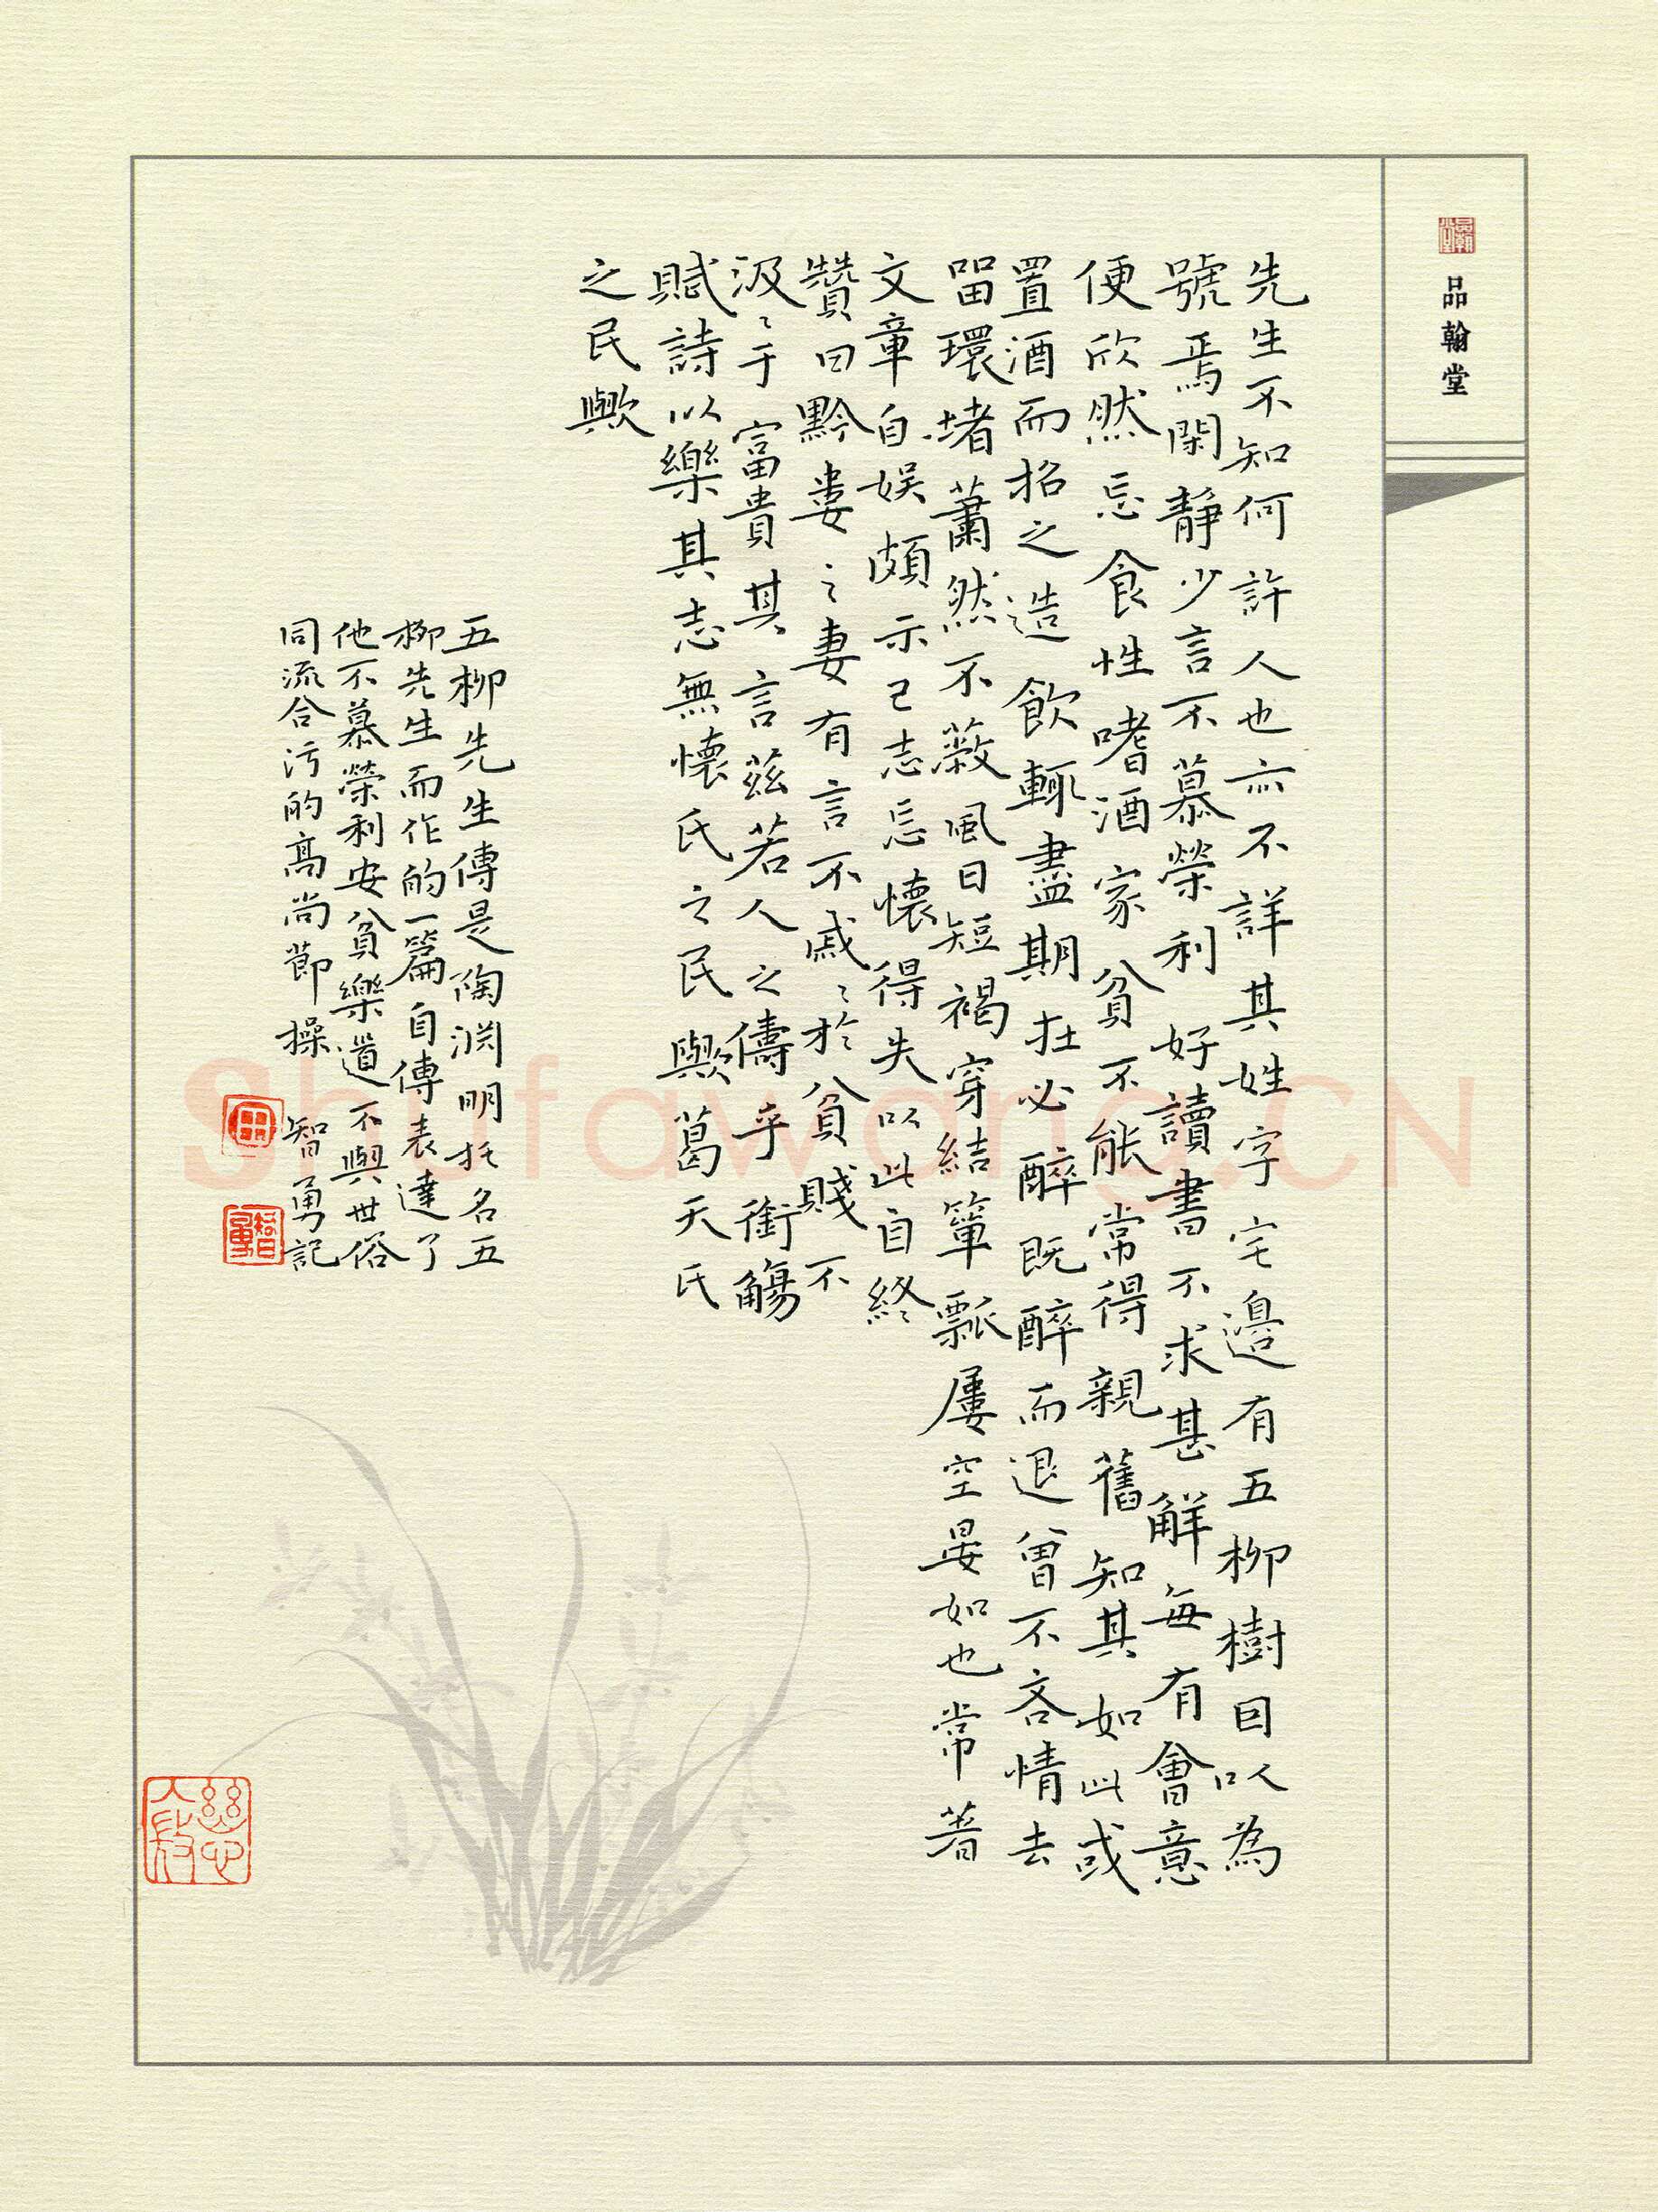 品翰堂
先生不知何許人也亦不詳其姓字宅邊有五柳樹因以為
號焉閑靜少言不慕榮利好讀書不求甚解每有會意
便欣然忘食性嗜酒家貧不能常得親舊知其如此或
置酒而招之造飲輒盡期在必醉既醉而退曾不吝情去
留環堵蕭然不蔽風日短褐穿結簞瓢屢空晏如也常著
文章自娛頗示己志忘懷得失以此自終
贊曰黔婁之妻有言不戚〻於貧賤不
汲〻于富貴其言茲若人之儔乎銜觴
賦詩以樂其志無懷氏之民歟葛天氏
之民歟
五柳先生傳是陶淵明托名五
柳先生而作的一篇自傳表達了
他不慕榮利安貧樂道不與世俗
同流合污的高尚節操 智勇記
Shufawang.CN